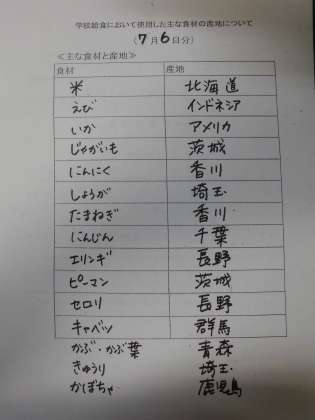 学校給食において使用した主な食材の産地について
(7月6日分)
≪主な食材と産地≫
食材 産地
米 北海道
えび インドネシア
いか アメリカ
じゃがいも 茨城
にんにく 香川
しょうが 埼玉
たまねぎ 香川
にんじん 千葉
エリンギ 長野
ピーマン 茨城
セロリ 長野
キャベツ 群馬
かぶ・かぶ葉 青森
きゅうり 埼玉
かぼちゃ 鹿児島